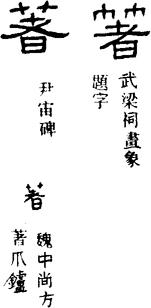 著
武梁祠畫象
題字
著
尹宙碑
著
魏中尚方
著爪鑪